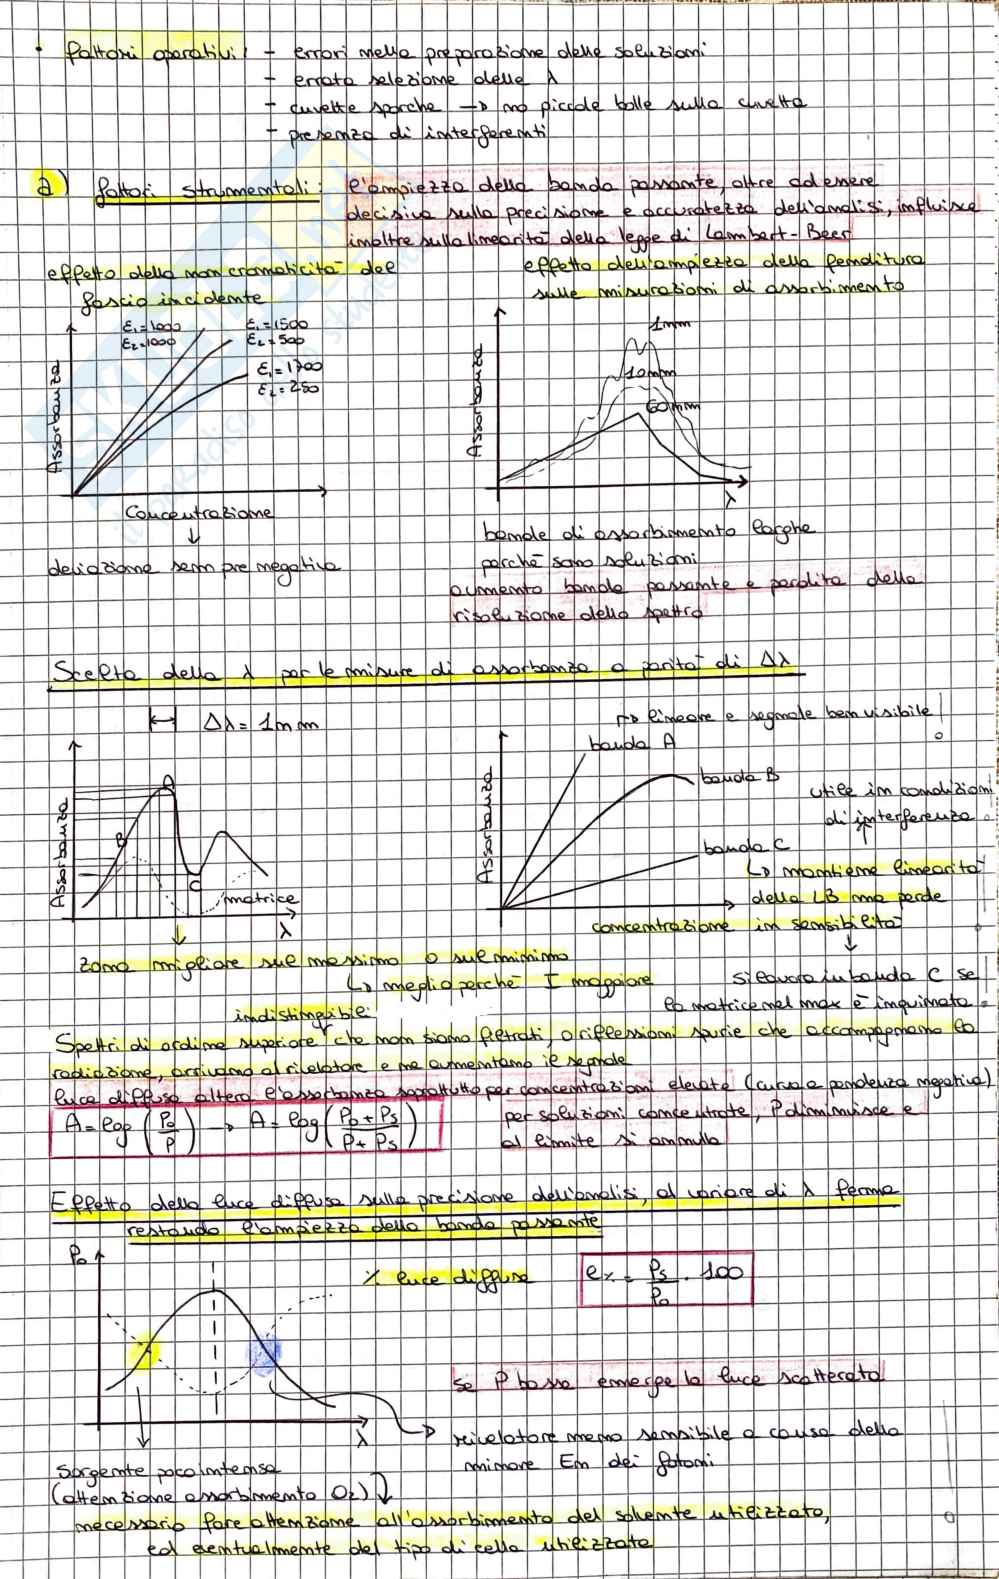 • fattori operativi: - errori nella preparazione delle soluzioni
- errata selezione delle λ
- cuvette sporche → no piccole bolle sulla cuvetta
- presenza di interferenti
2) fattori strumentali: l'ampiezza della banda passante, oltre ad essere
decisiva sulla precisione e accuratezza dell'analisi, influisce
inoltre sulla linearità della legge di Lambert-Beer
effetto della non cromaticità del
fascio incidente
effetto dell'ampiezza della fenditura
sulle misurazioni di assorbimento
ε₁=1000
ε₂=1000
ε₁=1500
ε₂=500
ε₁=1700
ε₂=250
Assorbanza
Concentrazione
↓
deviazione sempre negativa
1nm
10nm
60nm
Assorbanza
λ
bande di assorbimento larghe
perché sono soluzioni
aumento banda passante e perdita della
risoluzione dello spettro
Scelta della λ per le misure di assorbanza a parità di Δλ
Δλ = 1nm
Assorbanza
A
B
C
matrice
λ
↓
→ lineare e segnale ben visibile!
banda A
banda B
utile in condizioni
di interferenza
banda C
↳ mantiene linearità
della LB ma perde
in sensibilità
Assorbanza
concentrazione
↓
zona migliore sul massimo o sul minimo
↳ meglio perché I maggiore
si lavora in banda C se
la matrice nel max è inquinata
indistinguibile
Spettri di ordine superiore che non siano filtrati, o riflessioni spurie che accompagnano la
radiazione, arrivano al rilevatore e ne aumentano il segnale
luce diffusa altera l'assorbanza soprattutto per concentrazioni elevate (curva a pendenza negativa)
A = log (P₀/P) → A = log (P₀ + Ps / P + Ps)
per soluzioni concentrate, P diminuisce e
al limite si annulla
Effetto della luce diffusa sulla precisione dell'analisi, al variare di λ ferma
restando l'ampiezza della banda passante
P₀
% luce diffusa
e% = Ps/P₀ · 100
se P bassa emerge la luce scatterata
λ
→ rivelatore meno sensibile a causa della
minore En dei fotoni
Sorgente poco intensa
(attenzione assorbimento O₂)
necessario fare attenzione all'assorbimento del solvente utilizzato,
ed eventualmente del tipo di cella utilizzata